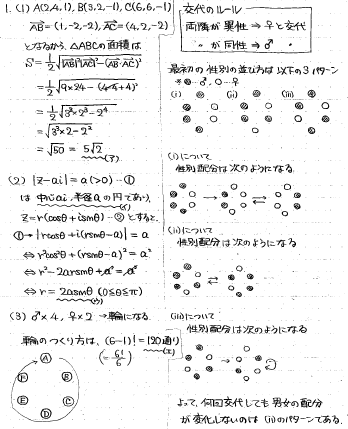 1. (1) A(2,4,1), B(3,2,-1), C(6,6,-1)
AB=(1,-2,-2), AC=(4,2,-2)
となるから, △ABCの面積は
S=1/2√|AB|²|AC|²-(AB·AC)²
=1/2√9×24-(4-4+4)²
=1/2√3³×2³-2⁴
=√3³×2-2²
=√50 = 5√2 (ア)
(2) |z-ai|=a(>0) …①
は 中心ai, 半径aの円であり, (イ)
z=r(cosθ+isinθ)…② とすると,
①→|rcosθ+i(rsinθ-a)|=a
⇔r²cos²θ+(rsinθ-a)²=a²
⇔r²-2arsinθ+a²=a²
⇔r=2asinθ (0≦θ≦π) (ウ)
(3) ♂×4, ♀×2 → 輪になる
輪のつくり方は, (6-1)!=120通り (エ)
(=6!/6)
A
B
C
D
E
F
交代のルール
両隣が異性 ⇒ ♀と交代
〃 が同性 ⇒ ♂ 〃
最初の性別の並び方は以下の3パターン
●…♂, ○…♀
(i) (ii) (iii)
(i)について
性別配分は次のようになる
(ii)について
性別配分は次のようになる
(iii)について
性別配分は次のようになる
よって, 何回交代しても男女の配分
が変化しないのは(iii)のパターンである.